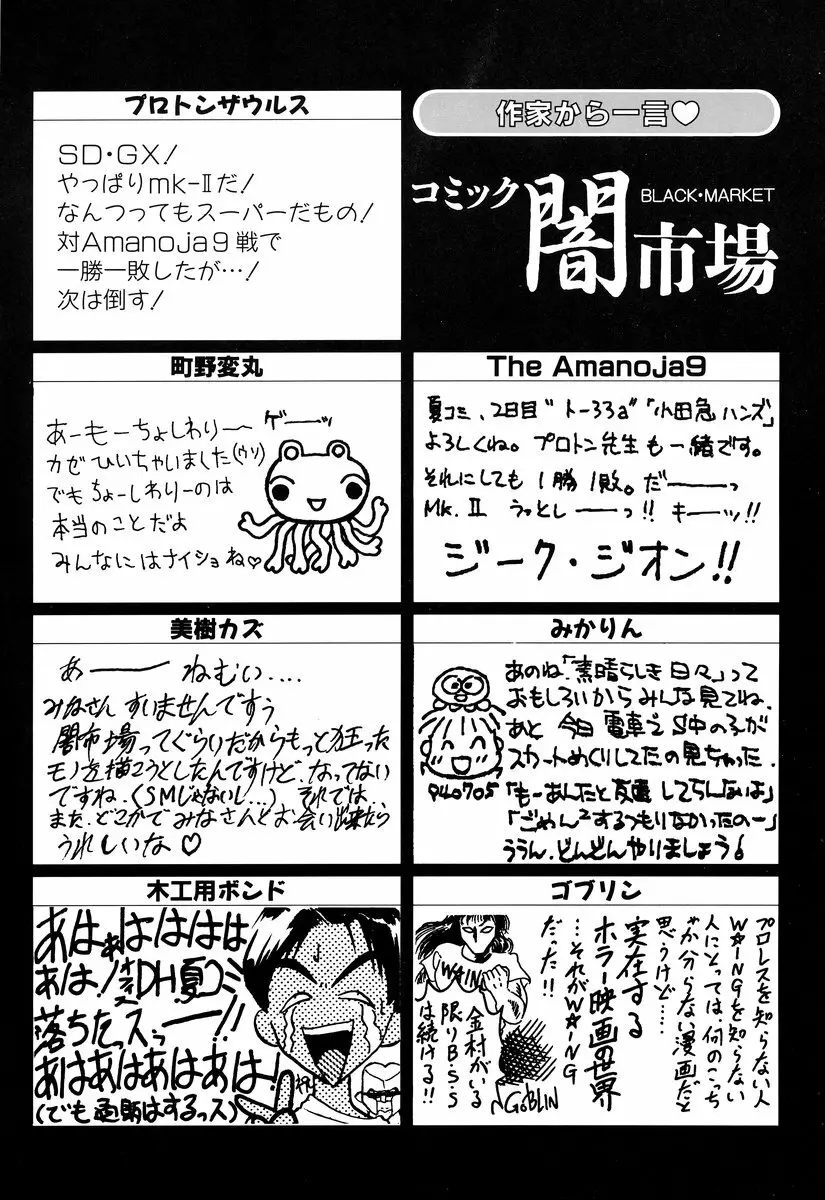 作家から一言♡
コミック 闇市場
BLACK・MARKET
プロトンザウルス
SD・GX!
やっぱりmk-Ⅱだ!
なんつってもスーパーだもの!
対Amanoja9戦で
一勝一敗したが…!
次は倒す!
町野変丸
あーもーちょしわりー
ゲーーッ
カゼひいちゃいました(ウソ)
でもちょーしわりーのは
本当のことだよ
みんなにはナイショね♡
The Amanoja9
夏コミ、2日目"トー33a"「小田急ハンズ」
よろしくね。プロトン先生も一緒です。
それにしても1勝1敗。だーーっ
Mk.Ⅱ うっとしーーっ!! キーッ!!
ジーク・ジオン!!
美樹カズ
あーーねむい....
みなさんすいませんですぅ
闇市場ってぐらいだからもっと狂った
モノを描こうとしたんですけど、なってない
ですね、(SMじゃないし...) それでは、
また、どこかでみなさんとお会い出来たら
うれしいな♡
みかりん
あのね、「素晴らしき日々」って
おもしろいからみんな見てね、
あと 今日 電車で 中の子が
スカートめくりしてたの見ちゃった、
940705
「もーあんたと友達してらんないよ」
「ごめん²するつもりなかったのー」
ううん、どんどんやりましょう。
木工用ボンド
あはぁはははは
あは! DH夏コミ
落ちたっスっーー!!
あはあはあはあは!
(でも通販はするっス)
ゴブリン
プロレスを知らない人
W★INGを知らない
人にとっては、何のこっち
ゃか分らない漫画だと
思うけど……
実在する
ホラー映画の世界
…それがW★ING
だった!!
W★ING
金村がいる
限りB・S・S
は続ける!!
GOBLIN